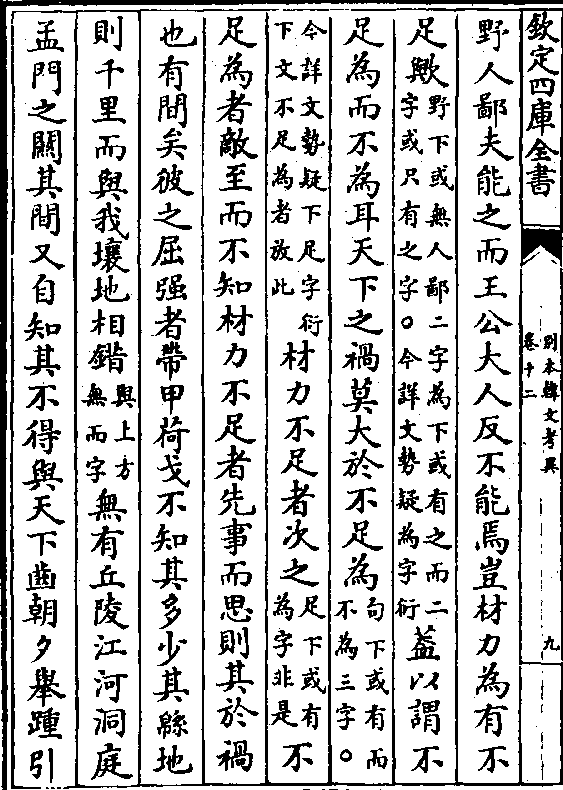 欽定四庫全書
別本韓文考異
卷十二
九
野人鄙夫能之而王公大人反不能焉豈材力為有不
足歟野下或無人鄙二字為下或有之而二字或只有之字○今詳文勢疑為字衍蓋以謂不
足為而不為耳天下之禍莫大於不足為句下或有而不為三字○
今詳文勢疑下足字衍下文不足為者放此材力不足者次之足下或有為字非是不
足為者敵至而不知材力不足者先事而思則其於禍
也有間矣彼之屈强者帶甲荷戈不知其多少其緜地
則千里而與我壤地相錯與上方無而字無有丘陵江河洞庭
孟門之關其間又自知其不得與天下齒朝夕舉踵引